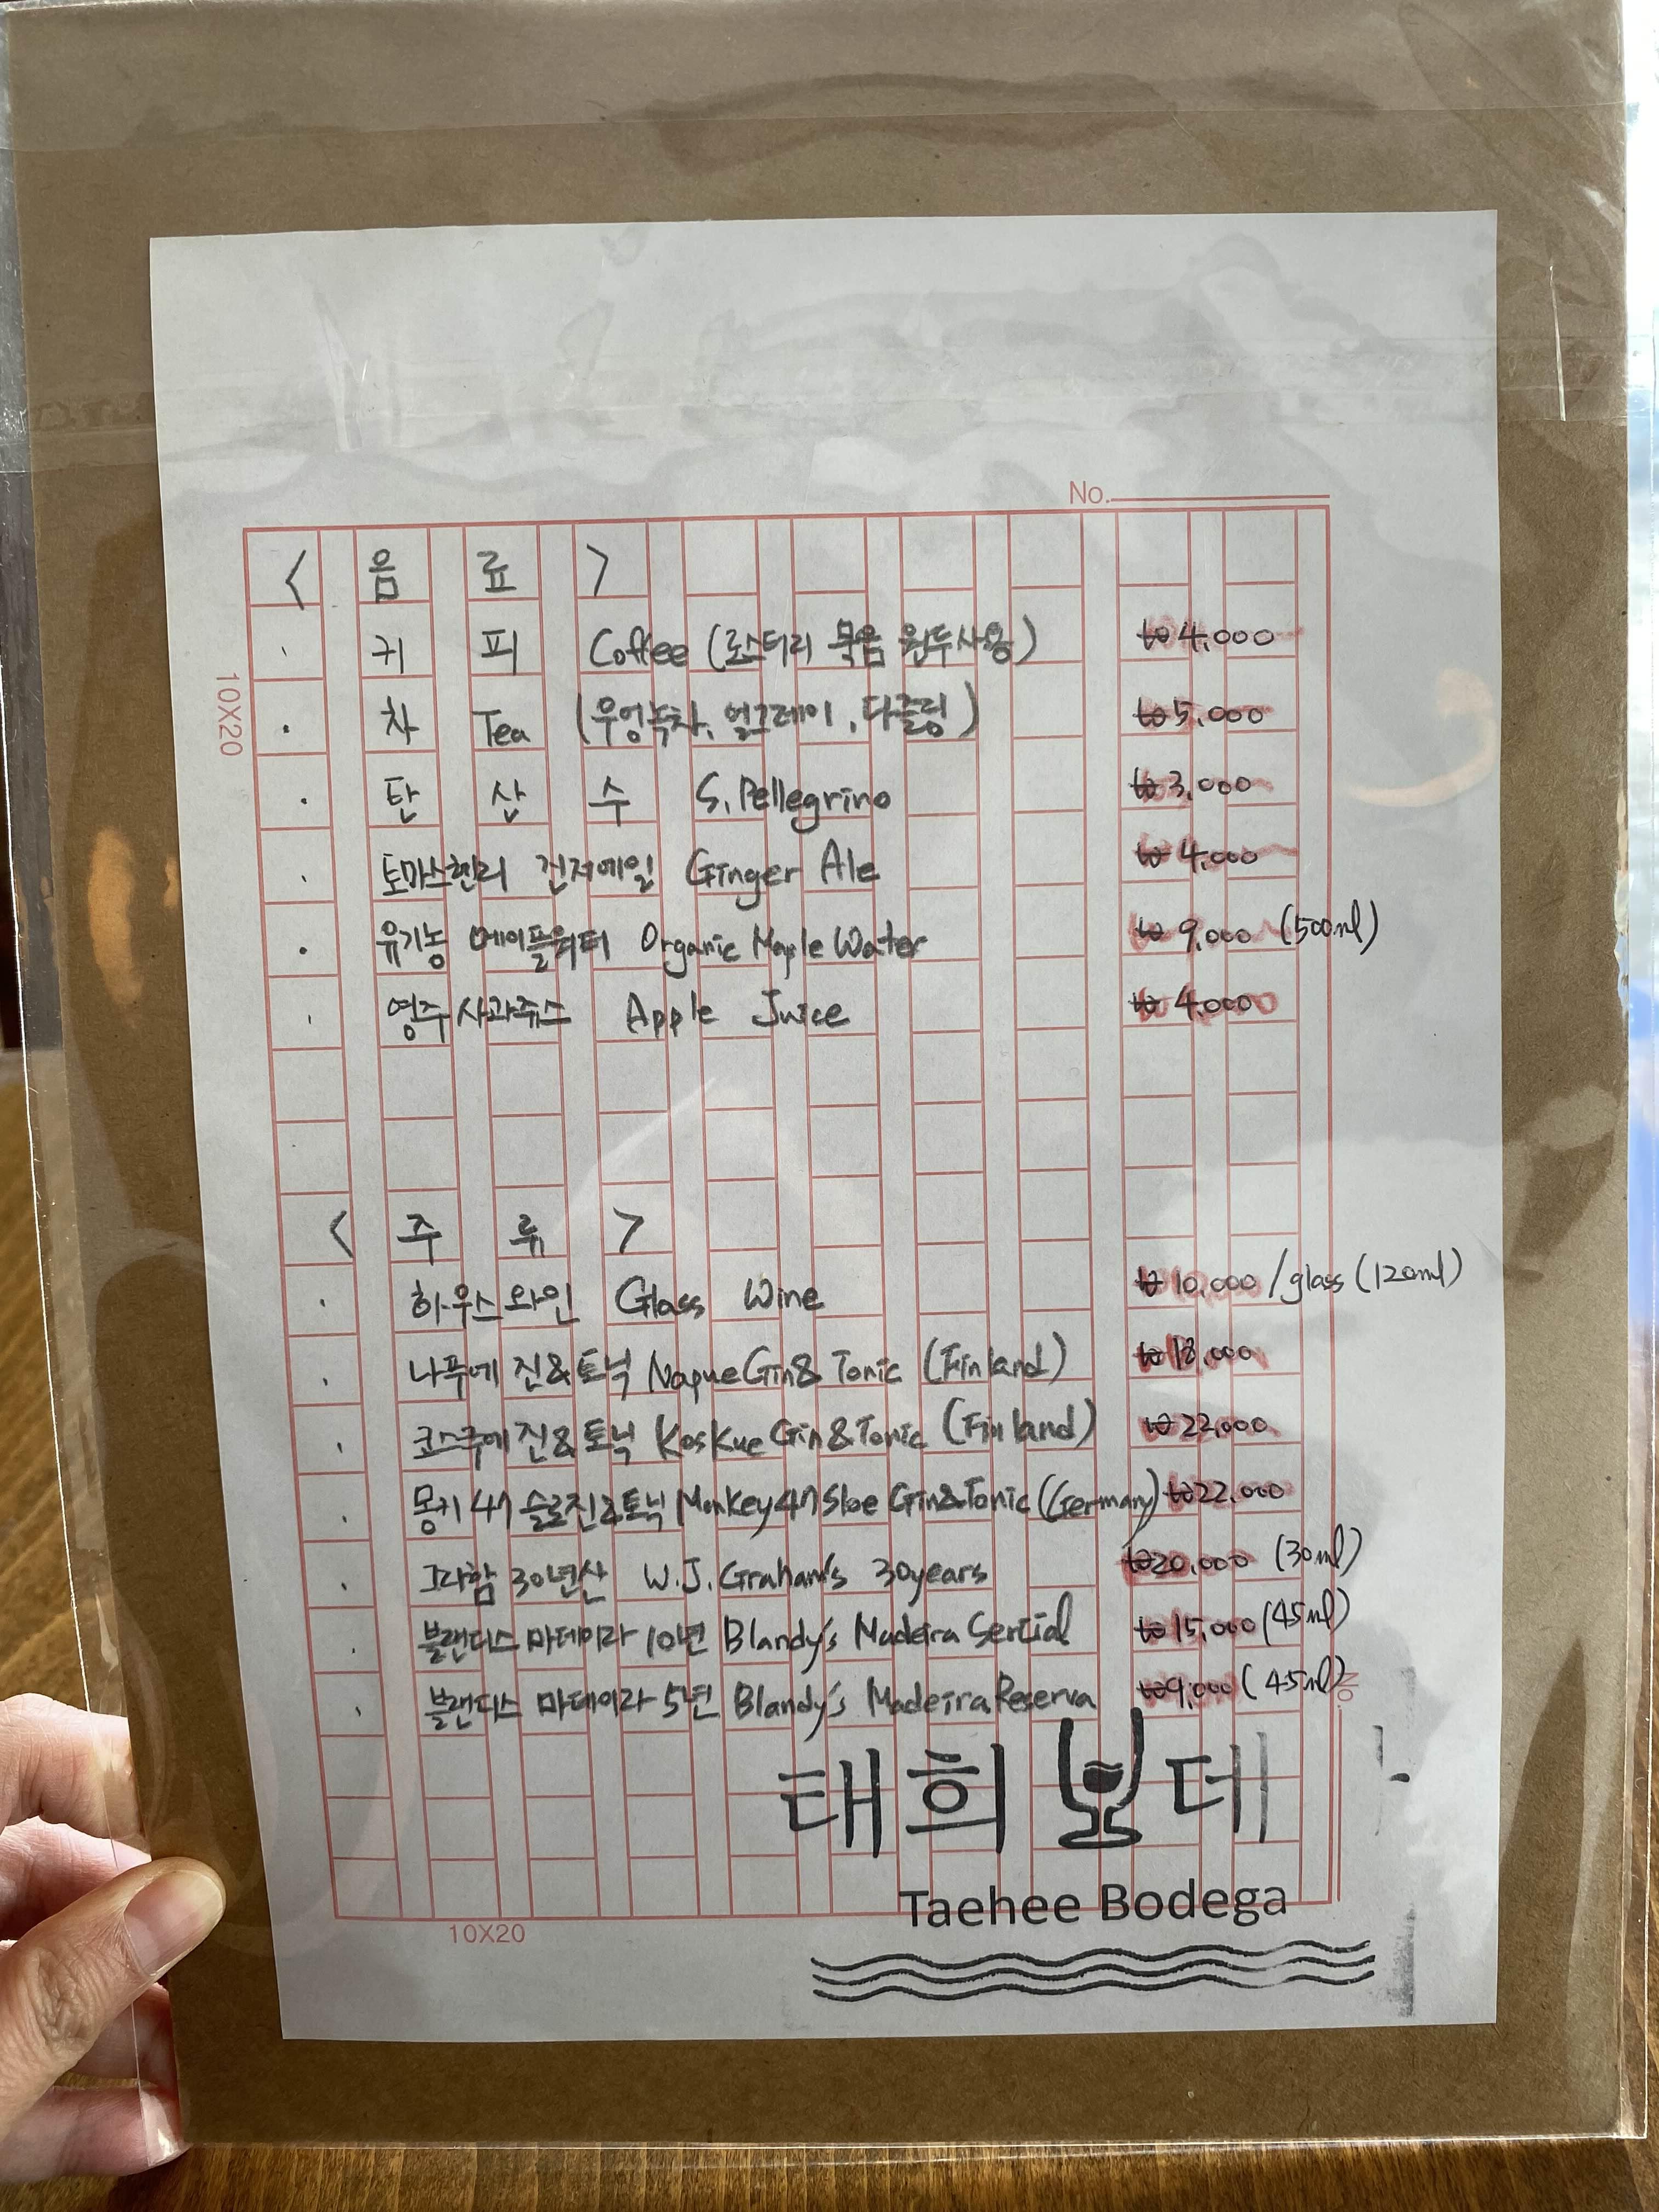 No.
< 음 료 >
· 커 피 Coffee (로스터리 묵음 원두사용) ₩4,000
· 차 Tea (우엉녹차, 얼그레이, 다즐링) ₩5,000
· 탄 산 수 S.Pellegrino ₩3,000
· 토마스헨리 진저에일 Ginger Ale ₩4,000
· 유기농 메이플워터 Organic Maple Water ₩9,000 (500ml)
· 영주사과쥬스 Apple Juice ₩4,000
< 주 류 >
· 하우스와인 Glass Wine ₩10,000 /glass (120ml)
· 나푸에 진&토닉 Napue Gin& Tonic (Finland) ₩18,000
· 코스쿠에 진&토닉 Koskue Gin&Tonic (Finland) ₩22,000
· 몽키 47 슬로진&토닉 Monkey47 Sloe Gin&Tonic (Germany) ₩22,000
· 그라함 30년산 W.J.Graham's 30years ₩20,000 (30ml)
· 블랜디스 마데이라 10년 Blandy's Madeira Sercial ₩15,000 (45ml)
· 블랜디스 마데이라 5년 Blandy's Madeira Reserva ₩9,000 (45ml)
태희 보데
Taehee Bodega
10X20
10X20
No.